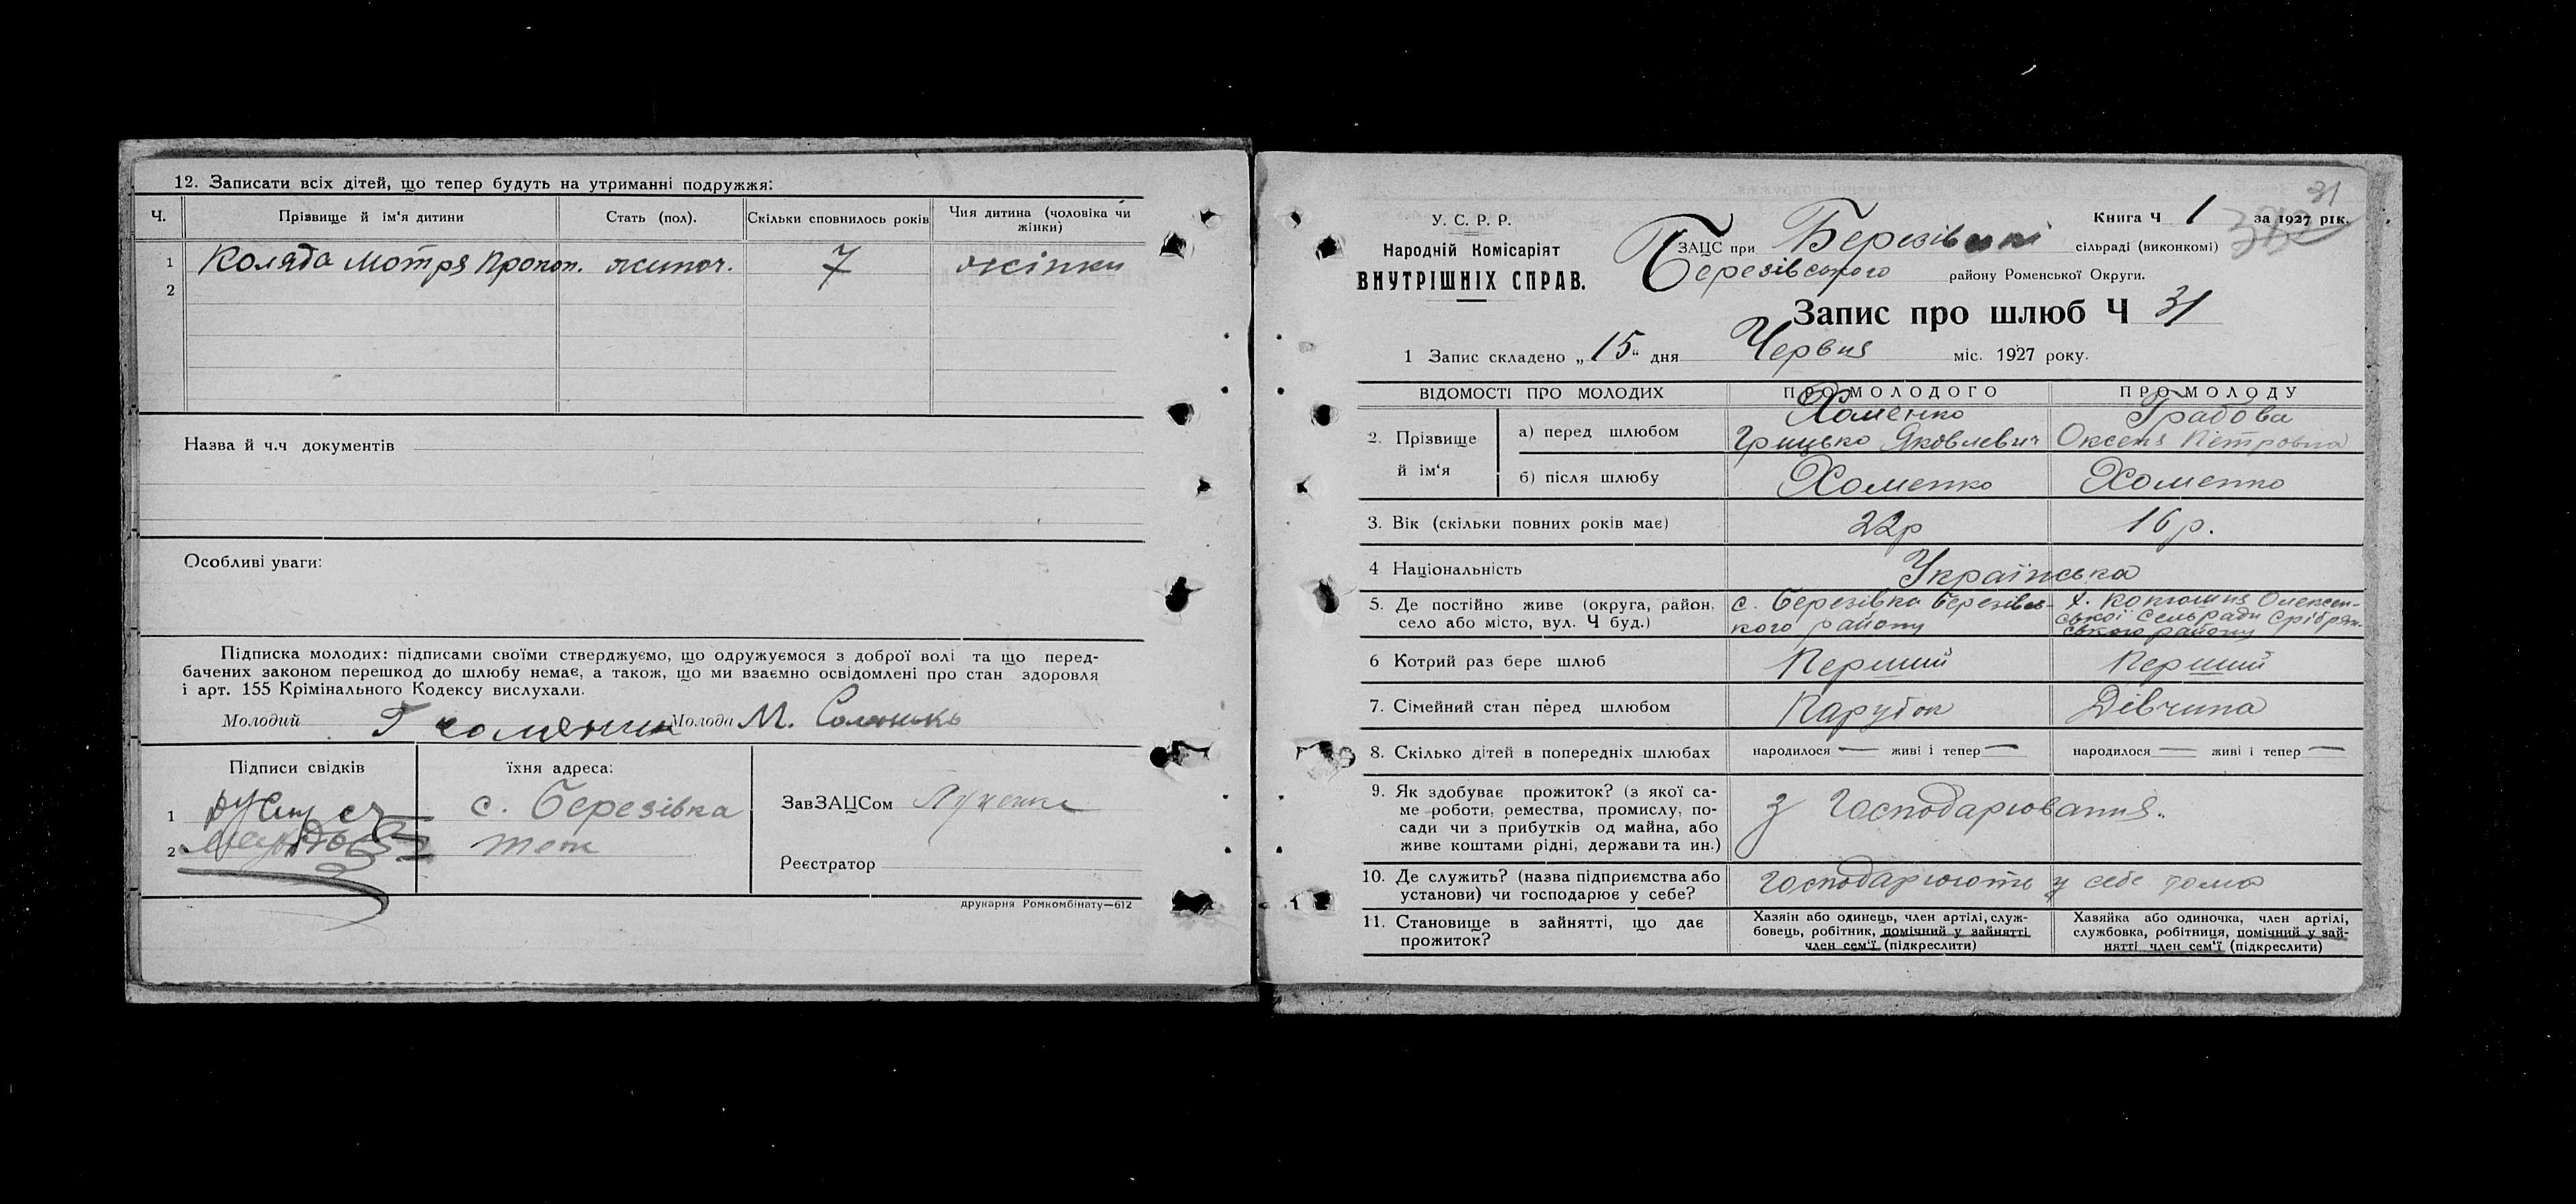 12. Записати всіх дітей, що тепер будуть на утриманні подружжя:
Ч. Прізвище й ім'я дитини Стать (пол). Скільки сповнилось років Чия дитина (чоловіка чи жінки)
1 Коляда Мотря Прокоп. жиноч. 7 жінки
2
Назва й ч.ч документів
Особливі уваги:
Підписка молодих: підписами своїми стверджуємо, що одружуємося з доброї волі та що перед-
бачених законом перешкод до шлюбу немає, а також, що ми взаємно освідомлені про стан здоровля
і арт. 155 Крімінального Кодексу вислухали.
Молодий Молода М.
Підписи свідків їхня адреса:
1 с. Березівка
ЗавЗАЦСом
2 тож
Реєстратор
друкарня Ромкомбінату—612
31
У. С. Р. Р.
Народній Комісаріят
ВНУТРІШНІХ СПРАВ.
Книга Ч 1 за 1927 рік.
ЗАЦС при сільраді (виконкомі)
Березівського району Роменської Округи.
Запис про шлюб Ч 31
1 Запис складено „15" дня Червня міс. 1927 року.
ВІДОМОСТІ ПРО МОЛОДИХ ПРО МОЛОДОГО ПРО МОЛОДУ
2. Прізвище й ім'я
а) перед шлюбом Хоменко Грицько Яковлевич Грабова Оксеня Петровна
б) після шлюбу Хоменко Хоменко
3. Вік (скільки повних років має) 22р 16 р.
4 Національність Українська
5. Де постійно живе (округа, район, село або місто, вул. Ч буд.) с. Березівка Березівсь-
кого району х. Олексин-
ської Сельради Срібрян-
ського району
6 Котрий раз бере шлюб Перший Перший
7. Сімейний стан перед шлюбом Парубок Дівчина
8. Скілько дітей в попередніх шлюбах народилося — живі і тепер — народилося — живі і тепер —
9. Як здобуває прожиток? (з якої са-
ме роботи, ремества, промислу, по-
сади чи з прибутків од майна, або
живе коштами рідні, держави та ин.)
З Господарювання.
10. Де служить? (назва підприємства або
установи) чи господарює у себе?
Господарюють у себе дома
11. Становище в зайнятті, що дає
прожиток?
Хазяін або одинець, член артілі, служ-
бовець, робітник, помічний у зайнятті
член сем'ї (підкреслити)
Хазяйка або одиночка, член артілі,
службовка, робітниця, помічний у зай-
нятті член сем'ї (підкреслити)